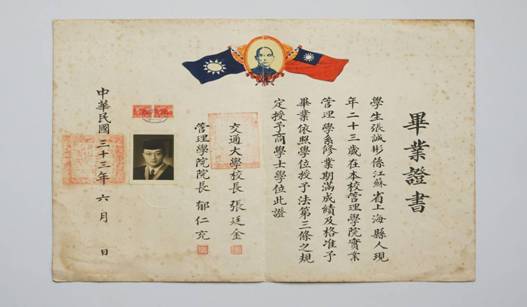 畢業證書
學生張誠彬係江蘇省上海縣人現
年二十三歲在本校管理學院實業
管理學系修業期滿成績及格准予
畢業依照學位授予法第三條之規
定授予商學士學位此證
交通大學校長 張廷金
管理學院院長 郁仁充
中華民國三十三年六月 日